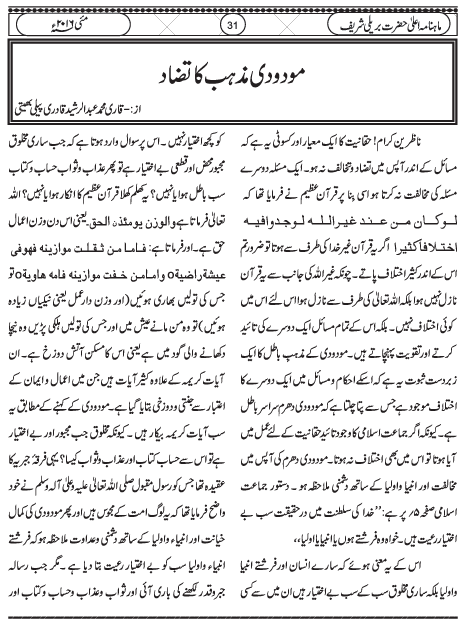 ماہنامہ اعلیٰ حضرت بریلی شریف
31
مئی ۲۰۱۶ء
مودودی مذہب کا تضاد
از:- قاری محمد عبدالرشید قادری پیلی بھیتی
ناظرین کرام! حقانیت کا ایک معیار اور کسوٹی یہ ہے کہ
مسائل کے اندر آپس میں تضاد و تخالف نہ ہو۔ ایک مسئلہ دوسرے
مسئلہ کی مخالفت نہ کرتا ہو اسی بنا پر قرآن عظیم نے فرمایا تھا کہ
لوکان من عند غیر اللہ لوجدوا فیہ
اختلافا کثیرا اگر یہ قرآن غیر خدا کی طرف سے ہوتا تو ضرور تم
اس کے اندر کثیر اختلاف پاتے۔ چونکہ غیر اللہ کی جانب سے یہ قرآن
نازل نہیں ہوا بلکہ اللہ تعالیٰ کی طرف سے نازل ہوا اس لئے اس میں
کوئی اختلاف نہیں۔ بلکہ اس کے تمام مسائل میں ایک دوسرے کی تائید
کرتے اور تقویت پہنچاتے ہیں۔ مودودی کے مذہب باطل کا ایک
زبردست ثبوت یہ ہے کہ اسکے احکام و مسائل میں ایک دوسرے کا
اختلاف موجود ہے جس سے پتا چلتا ہے کہ مودودی دھرم سراسر باطل
ہے۔ کیونکہ اگر جماعت اسلامی کا وجود تائید حقانیت کے لئے عمل میں
آیا ہوتا تو اس میں بھی اختلاف نہ ہوتا۔ مودودی دھرم کی آپس میں
مخالفت اور انبیا و اولیا کے ساتھ دشمنی ملاحظہ ہو۔ دستور جماعت
اسلامی صفحہ ۵ پر ہے: ’’خدا کی سلطنت میں درحقیقت سب بے
اختیار رعیت ہیں۔ خواہ وہ فرشتے ہوں یا انبیا یا اولیا‘‘
اس کے یہ معنی ہوئے کہ سارے انسان اور فرشتے انبیا
و اولیا بلکہ ساری مخلوق سب کے سب بے اختیار ہیں ان میں سے کسی
کو کچھ اختیار نہیں۔ اس پر سوال وارد ہوتا ہے کہ جب ساری مخلوق
مجبور محض اور قطعی بے اختیار ہے تو پھر عذاب و ثواب حساب و کتاب
سب باطل ہوا یا نہیں؟ یہ کھلم کھلا قرآن عظیم کا انکار ہوا یا نہیں؟ اللہ
تعالیٰ فرماتا ہے والوزن یومئذن الحق۔ یعنی اس دن وزن اعمال
حق ہے۔ اور فرماتا ہے: فاما من ثقلت موازینہ فھو فی
عیشۃ راضیۃ o واما من خفت موازینہ فامہ ھاویۃ o تو
جس کی تولیں بھاری ہوئیں (اور وزن دار عمل یعنی نیکیاں زیادہ
ہوئیں) تو وہ من مانے عیش میں اور جس کی تولیں ہلکی پڑیں وہ نیچا
دکھانے والی گود میں ہے یعنی اس کا مسکن آتش دوزخ ہے۔ ان
آیات کریمہ کے علاوہ کثیر آیات ہیں جن میں اعمال و ایمان کے
اعتبار سے جنتی و دوزخی بتایا گیا ہے۔ مودودی کے کہنے کے مطابق یہ
سب آیات کریمہ بیکار ہیں۔ کیونکہ مخلوق جب مجبور اور بے اختیار
ہے تو اس سے حساب کتاب اور عذاب و ثواب کیسا؟ یہی فرقۂ جبریہ کا
عقیدہ تھا جس کو رسول مقبول صلی اللہ تعالیٰ علیہ وعلیٰ آلہ وسلم نے خود
واضح فرمایا تھا کہ یہ لوگ امت کے مجوس ہیں اور پھر مودودی کی کمال
خیانت اور انبیاء و اولیاء کے ساتھ دشمنی و عداوت ملاحظہ ہو کہ فرشتے
انبیاء و اولیاء سب کو بے اختیار رعیت بتا دیا ہے۔ مگر جب رسالہ
جبر و قدر لکھنے کی باری آئی اور ثواب و عذاب و حساب و کتاب اور